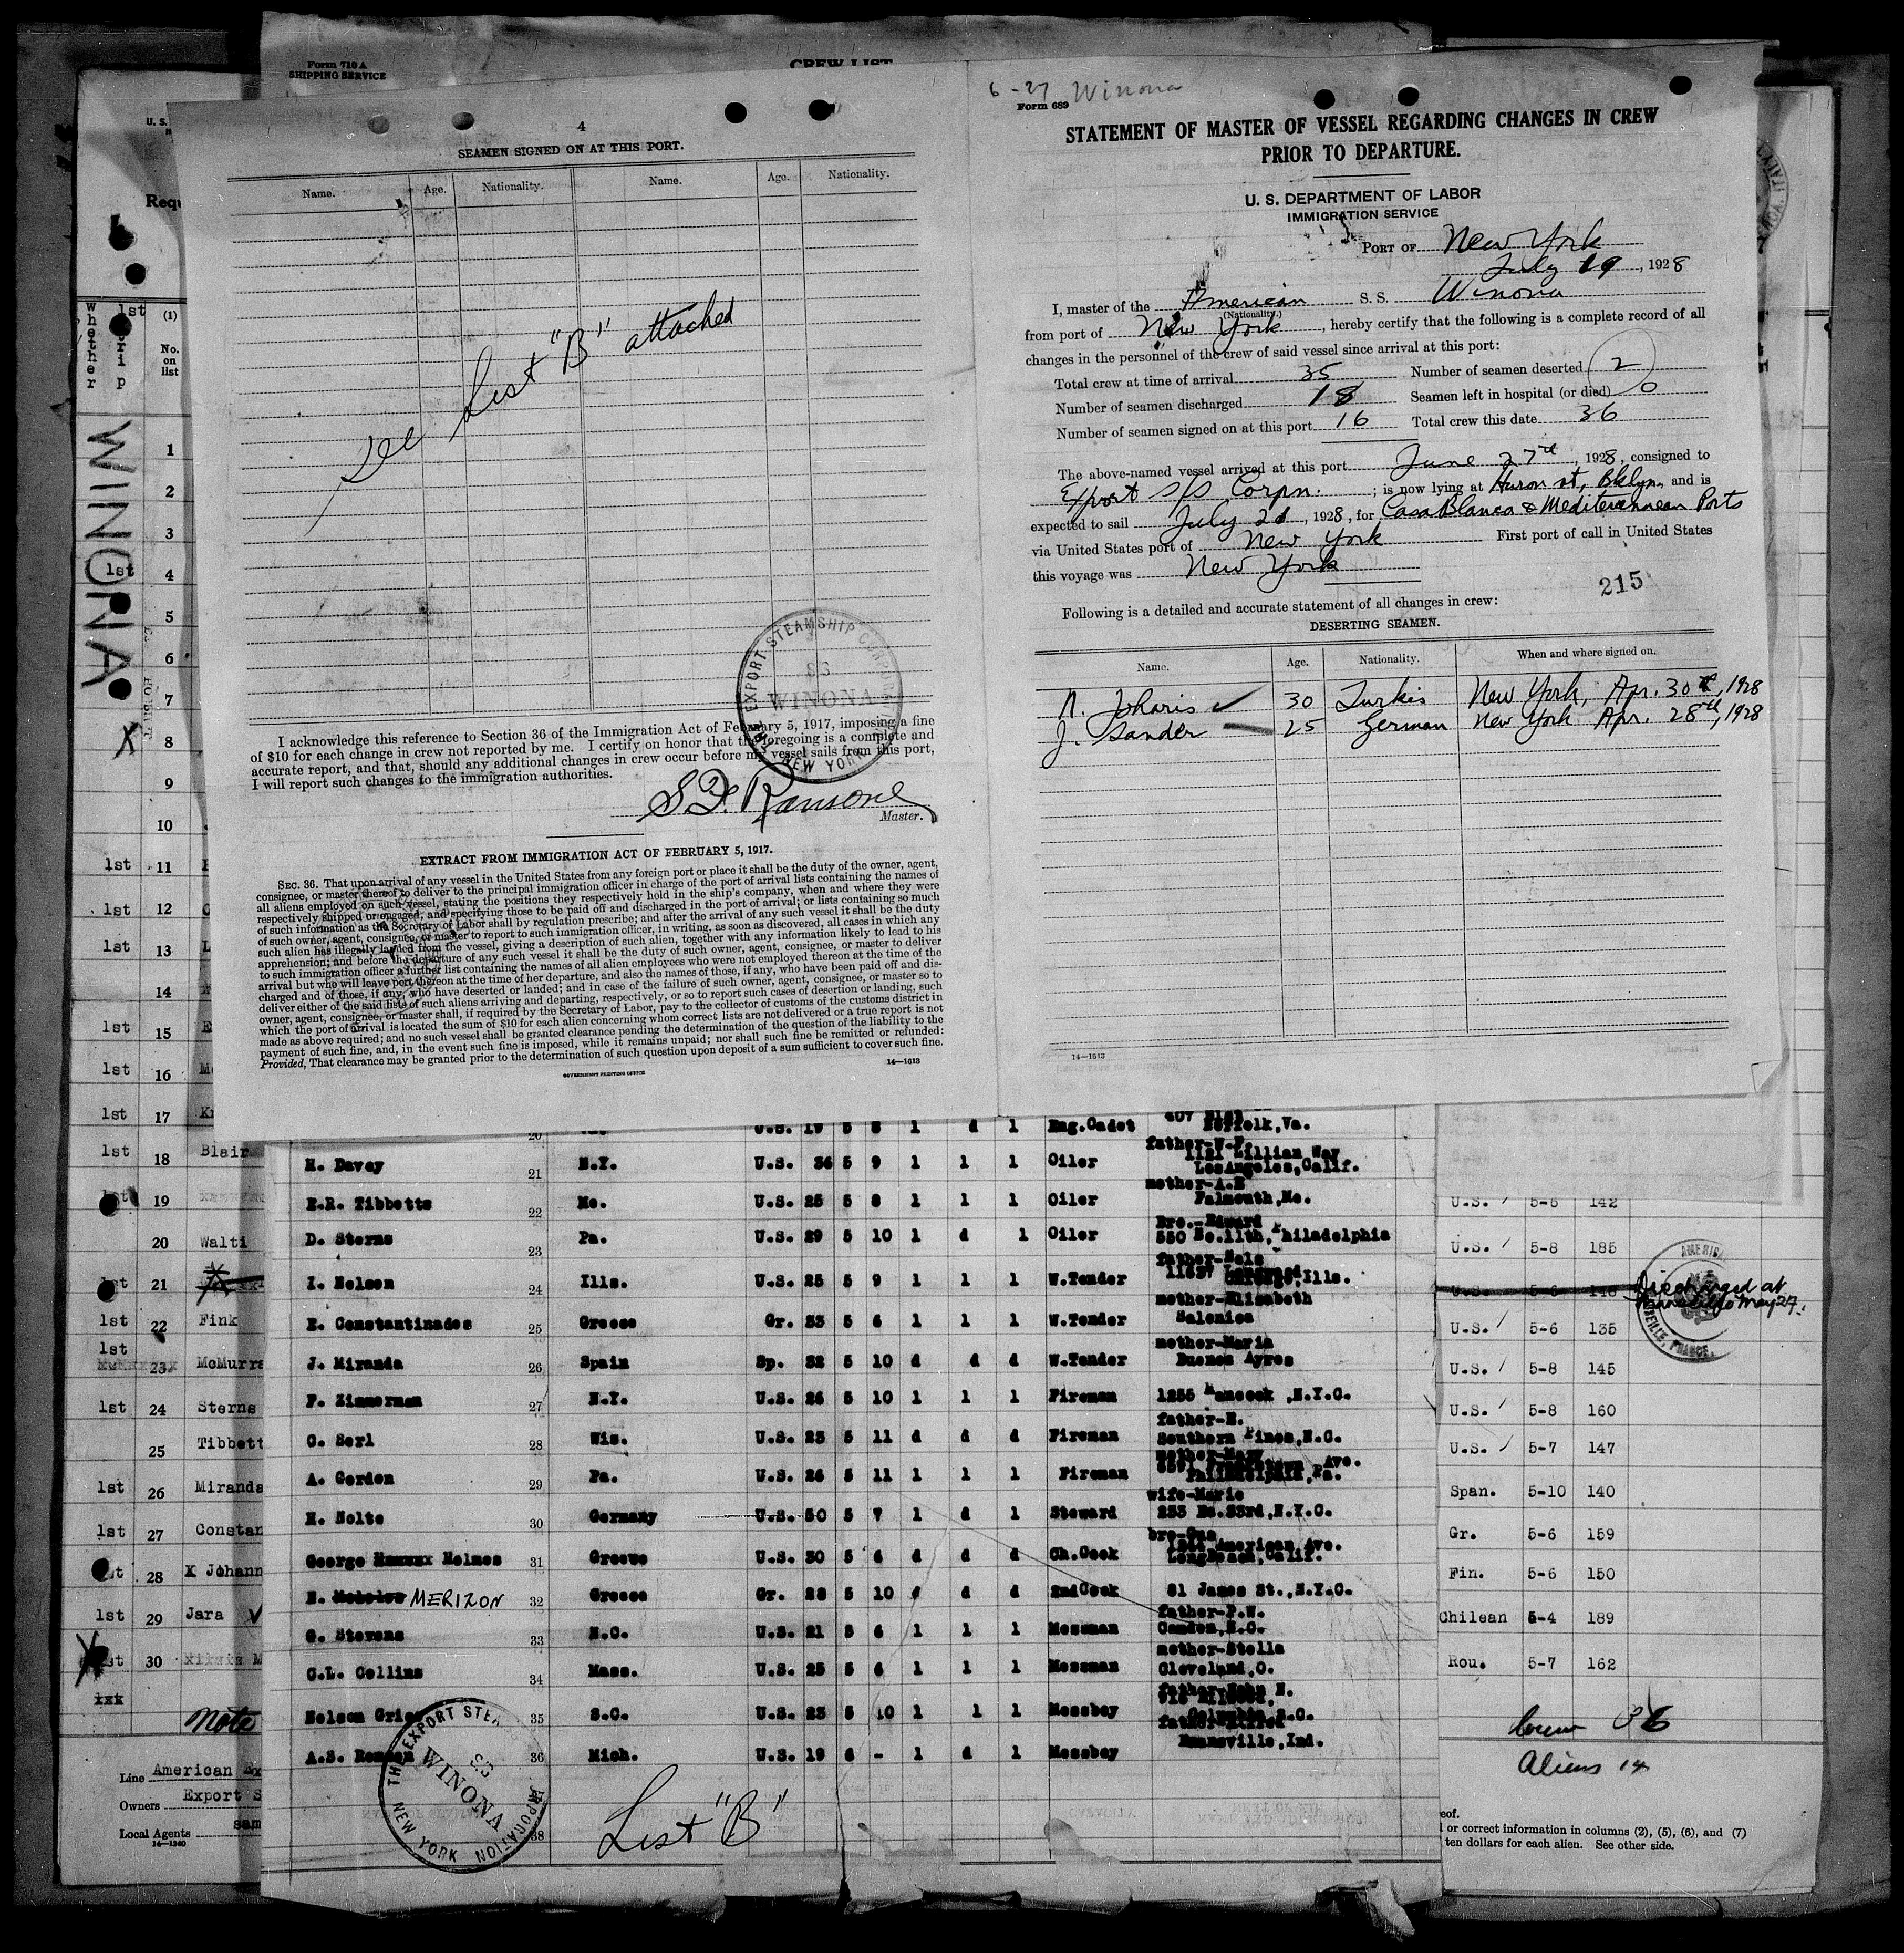 Form 710 A
SHIPPING SERVICE
CREW LIST
4
SEAMEN SIGNED ON AT THIS PORT.
Name. Age. Nationality. Name. Age. Nationality.
See List "B" attached
THE EXPORT STEAMSHIP CORPORATION
SS
WINONA
NEW YORK
I acknowledge this reference to Section 36 of the Immigration Act of February 5, 1917, imposing a fine
of $10 for each change in crew not reported by me. I certify on honor that the foregoing is a complete and
accurate report, and that, should any additional changes in crew occur before my vessel sails from this port,
I will report such changes to the immigration authorities.
Master.
EXTRACT FROM IMMIGRATION ACT OF FEBRUARY 5, 1917.
SEC. 36. That upon arrival of any vessel in the United States from any foreign port or place it shall be the duty of the owner, agent,
consignee, or master thereof to deliver to the principal immigration officer in charge of the port of arrival lists containing the names of
all aliens employed on such vessel, stating the positions they respectively hold in the ship's company, when and where they were
respectively shipped or engaged, and specifying those to be paid off and discharged in the port of arrival; or lists containing so much
of such information as the Secretary of Labor shall by regulation prescribe; and after the arrival of any such vessel it shall be the duty
of such owner, agent, consignee, or master to report to such immigration officer, in writing, as soon as discovered, all cases in which any
such alien has illegally landed from the vessel, giving a description of such alien, together with any information likely to lead to his
apprehension; and before the departure of any such vessel it shall be the duty of such owner, agent, consignee, or master to deliver
to such immigration officer a further list containing the names of all alien employees who were not employed thereon at the time of the
arrival but who will leave port thereon at the time of her departure, and also the names of those, if any, who have been paid off and dis-
charged and of those, if any, who have deserted or landed; and in case of the failure of such owner, agent, consignee, or master so to
deliver either of the said lists of such aliens arriving and departing, respectively, or so to report such cases of desertion or landing, such
owner, agent, consignee, or master shall, if required by the Secretary of Labor, pay to the collector of customs of the customs district in
which the port of arrival is located the sum of $10 for each alien concerning whom correct lists are not delivered or a true report is not
made as above required; and no such vessel shall be granted clearance pending the determination of the question of the liability to the
payment of such fine, and, in the event such fine is imposed, while it remains unpaid; nor shall such fine be remitted or refunded:
Provided, That clearance may be granted prior to the determination of such question upon deposit of a sum sufficient to cover such fine.
14—1613
GOVERNMENT PRINTING OFFICE
6-27 Winona
Form 689
STATEMENT OF MASTER OF VESSEL REGARDING CHANGES IN CREW
PRIOR TO DEPARTURE.
U. S. DEPARTMENT OF LABOR
IMMIGRATION SERVICE
PORT OF New York
July 19, 1928
I, master of the American S. S. Winona
(Nationality.)
from port of New York, hereby certify that the following is a complete record of all
changes in the personnel of the crew of said vessel since arrival at this port:
Total crew at time of arrival 35 Number of seamen deserted 2
Number of seamen discharged 18 Seamen left in hospital (or died) 0
Number of seamen signed on at this port 16 Total crew this date 36
The above-named vessel arrived at this port June 27th, 1928, consigned to
Export S/S Corpn. ; is now lying at Huron st, Bklyn, and is
expected to sail July 21, 1928, for CasaBlanca & Mediterranean Ports
via United States port of New York First port of call in United States
this voyage was New York
215
Following is a detailed and accurate statement of all changes in crew:
DESERTING SEAMEN.
Name. Age. Nationality. When and where signed on.
N. Joharis 30 Turkis New York, Apr. 30th, 1928
J. Sander 25 German New York Apr. 28th, 1928
14—1613
U. S.
Requ
Whether
(1)
No.
on
list
WINONA
1st
1
2
3
1st 4
5
6
7
X 8
9
10
1st 11
1st 12
1st 13
14
1st 15
1st 16
1st 17
1st 18 Blair
1st 19
20 Walti
1st 21
1st 22 Fink
1st 23 McMurra
1st 24 Sterns
25 Tibbett
1st 26 Miranda
1st 27 Constan
1st 28 X Johann
1st 29 Jara
1st 30
Note
Line American Ex
Owners Export S
Local Agents sam
14—1240
20 U.S. 19 5 8 1 d 1 Eng.Cadet Norfolk,Va.
H. Davey 21 N.Y. U.S. 36 5 9 1 1 1 Oiler father-W.F. 1121 Lillian Way LosAngeles,Calif.
E.R. Tibbetts 22 Me. U.S. 25 5 8 1 1 1 Oiler mother-A.E Falmouth,Me.
D. Sterns 23 Pa. U.S. 29 5 10 1 d 1 Oiler Bro.-Edward 550 No.11th, Philadelphia
I. Nelson 24 Ills. U.S. 25 5 9 1 1 1 W.Tender father-Nels Ills.
E. Constantinades 25 Greece Gr. 33 5 6 1 1 1 W.Tender mother-Elizabeth Salonica
J. Miranda 26 Spain Sp. 32 5 10 d d d W.Tender mother-Maria Buenos Ayres
F. Zimmerman 27 N.Y. U.S. 26 5 10 1 1 1 Fireman 1255 Hancock ,N.Y.C.
C. Serl 28 Wis. U.S. 23 5 11 d d d Fireman father-H. Southern Pines,N.C.
A. Gordon 29 Pa. U.S. 26 5 11 1 1 1 Fireman mother-Mary Ave. Philadelphia,Pa.
H. Nolte 30 Germany U.S. 50 5 7 1 d 1 Steward wife-Marie 233 Ea.83rd,N.Y.C.
George Holmes 31 Greece U.S. 30 5 6 d d d Ch.Cook bro-Gus American Ave. LongBeach,Calif.
N. MERIZON 32 Greece Gr. 28 5 10 d d d 2ndCook 81 James St.,N.Y.C.
G. Stevens 33 N.C. U.S. 21 5 6 1 1 1 Messman father-P.W. Camden,N.C.
C.L. Collins 34 Mass. U.S. 25 5 6 1 1 1 Messman mother-Stella Cleveland,O.
Nelson 35 S.C. U.S. 23 5 10 1 1 1 Messboy father-John H. Columbia,S.C.
A.S. 36 Mich. U.S. 19 6 - 1 d 1 Messboy father-Alfred Evansville,Ind.
38
THE EXPORT STEA
SS
WINONA
NEW YORK
List "B"
U.S. 5-6 142
U.S. 5-8 185
U.S. 5-6 148
Discharged at Marseille May 27.
AMERICA
MARSEILLE, FRANCE.
U.S. 5-6 135
U.S. 5-8 145
U.S. 5-8 160
U.S. 5-7 147
Span. 5-10 140
Gr. 5-6 159
Fin. 5-6 150
Chilean 5-4 189
Rou. 5-7 162
Crew 36
Aliens 14
eof.
l or correct information in columns (2), (5), (6), and (7)
ten dollars for each alien. See other side.